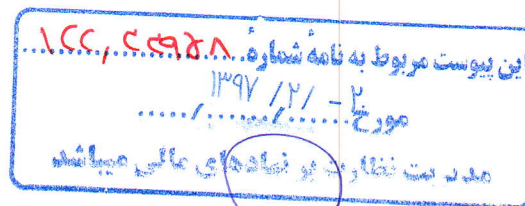 این پیوست مربوط به نامهٔ شمارهٔ ۱۲۲/۲۲۹۵۸
مورخ ۱۳۹۷/۲/۲
مدیریت نظارت بر نهادهای مالی میباشد